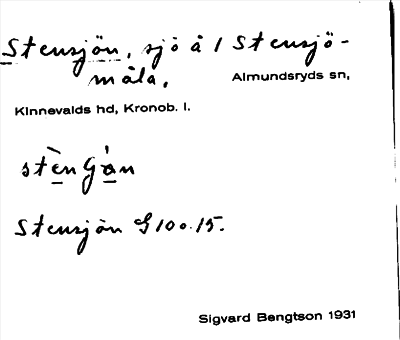 Stensjön, sjö å / Stensjö-
måla,
Almundsryds sn,
Kinnevalds hd, Kronob. l.
Stensjön G 100.15.
Sigvard Bengtson 1931